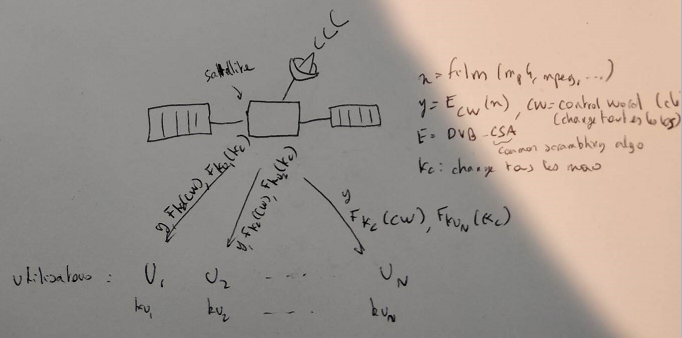 satellite
x = film (mp4, mpeg, ...)
y = E_CW(x), CW = control word (clé)
(change toutes les 10s)
E = DVB-CSA
common scrambling algo
kc : change tous les mois
y, F_kc(CW), F_ku1(kc)
y, F_kc(CW), F_ku2(kc)
y
F_kc(CW), F_kUN(kc)
utilisateurs : U1 U2 ---- UN
ku1 ku2 ---- kuN